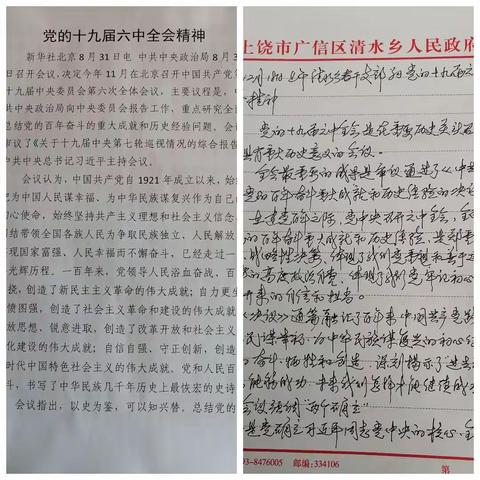 党的十九届六中全会精神
新华社北京8月31日电 中共中央政治局8月3
召开会议，决定今年11月在北京召开中国共产党
十九届中央委员会第六次全体会议，主要议程是，中
共中央政治局向中央委员会报告工作，重点研究全
总结党的百年奋斗的重大成就和历史经验问题。会
审议了《关于十九届中央第七轮巡视情况的综合报告
中共中央总书记习近平主持会议。
会议认为，中国共产党自1921年成立以来，始
为中国人民谋幸福、为中华民族谋复兴作为自己
初心使命，始终坚持共产主义理想和社会主义信念
结带领全国各族人民为争取民族独立、人民解放
现国家富强、人民幸福而不懈奋斗，已经走过一
光辉历程。一百年来，党领导人民浴血奋战、百
挠，创造了新民主主义革命的伟大成就；自力更生
愤图强，创造了社会主义革命和建设的伟大成就
放思想、锐意进取，创造了改革开放和社会主义
化建设的伟大成就；自信自强、守正创新，创造
时代中国特色社会主义的伟大成就。党和人民百
斗，书写了中华民族几千年历史上最恢宏的史诗
会议指出，以史为鉴，可以知兴替。总结党的
上饶市广信区清水乡人民政府
党的十九届六
精神
党的十九届六中全会是在重要历史关头
具有重大历史意义的会议。
全会最重要的成果是审议通过了《中共
党的百年奋斗重大成就和历史经验的决议
在建党百年之际，党中央召开六中全会，
的百年奋斗重大成就和历史经验，是郑重
战略性决策，体现了我们党重视和善于
的高度政治自觉，体现了我们党牢记初心
《决议》通篇贯穿了百年来中国共产党
民谋幸福、为中华民族谋复兴的初心
奋斗、牺牲和创造，深刻揭示了过去
能够成功、未来我们怎样才能继续成
会议强调"两个确立"
是党确立习近平同志党中央的核心、全
93-8476005 邮编:334106
第